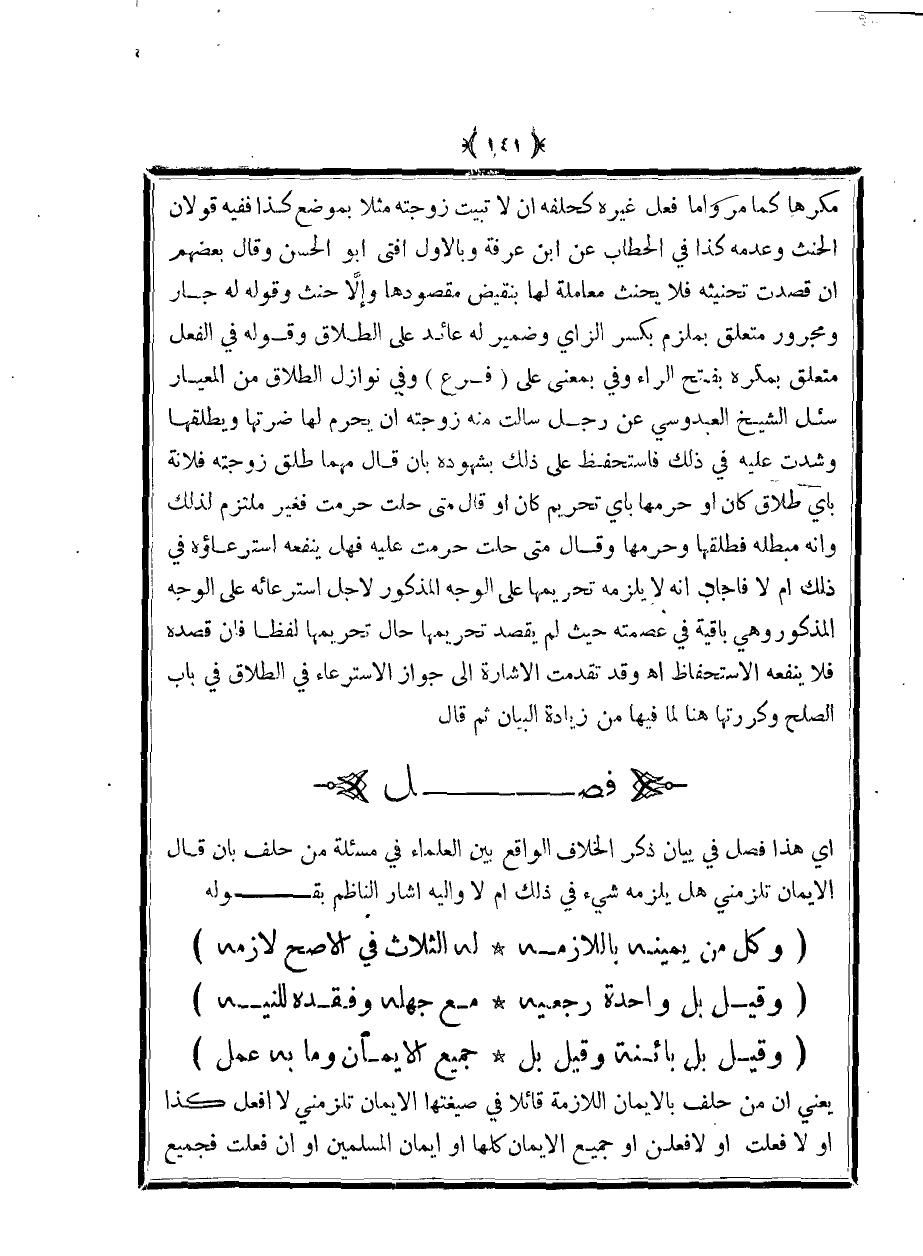 ﴿ ١٤١ ﴾
مكرها كما مر واما فعل غيره كحلفه ان لا تبيت زوجته مثلا بموضع كذا ففيه قولان
الحنث وعدمه كذا في الحطاب عن ابن عرفة وبالاول افتى ابو الحسن وقال بعضهم
ان قصدت تحنيثه فلا يحنث معاملة لها بنقيض مقصودها وإلَّا حنث وقوله له جــار
ومجرور متعلق بملزم بكسر الزاي وضمير له عائد على الطلاق وقوله في الفعل
متعلق بمكره بفتح الراء وفي بمعنى على ( فــرع ) وفي نوازل الطلاق من المعيـار
سئل الشيخ العبدوسي عن رجــل سالت منه زوجته ان يحرم لها ضرتها ويطلقهـا
وشدت عليه في ذلك فاستحفظ على ذلك بشهوده بان قـال مهما طلق زوجته فلانة
باي طلاق كان او حرمها باي تحريم كان او قال متى حلت حرمت فغير ملتزم لذلك
وانه مبطله فطلقها وحرمها وقـال متى حلت حرمت عليه فهل ينفعه استرعـاؤه في
ذلك ام لا فاجاب انه لا يلزمه تحريمها على الوجه المذكور لاجل استرعائه على الوجه
المذكور وهي باقية في عصمته حيث لم يقصد تحريمها حال تحريمها لفظـا فان قصده
فلا ينفعه الاستحفاظ اه وقد تقدمت الاشارة الى جواز الاسترعاء في الطلاق في باب
الصلح وكررتها هنا لما فيها من زيادة البيان ثم قال
فصــــــــل
اي هذا فصل في بيان ذكر الخلاف الواقع بين العلماء في مسئلة من حلف بان قـال
الايمان تلزمني هل يلزمه شيء في ذلك ام لا واليه اشار الناظم بقـــــــوله
( وكل من يمينه باللازمــه * له الثلاث في الاصح لازمه )
( وقيــل بل واحدة رجعيه * مــع جهله وفـقـده للنيــه )
( وقيــل بل بائـنة وقيل بل * جميع الايمـان وما به عمل )
يعني ان من حلف بالايمان اللازمة قائلا في صيغتها الايمان تلزمني لا افعل كـذا
او لا فعلت او لافعلن او جميـع الايمان كلها او ايمان المسلمين او ان فعلت فجميع